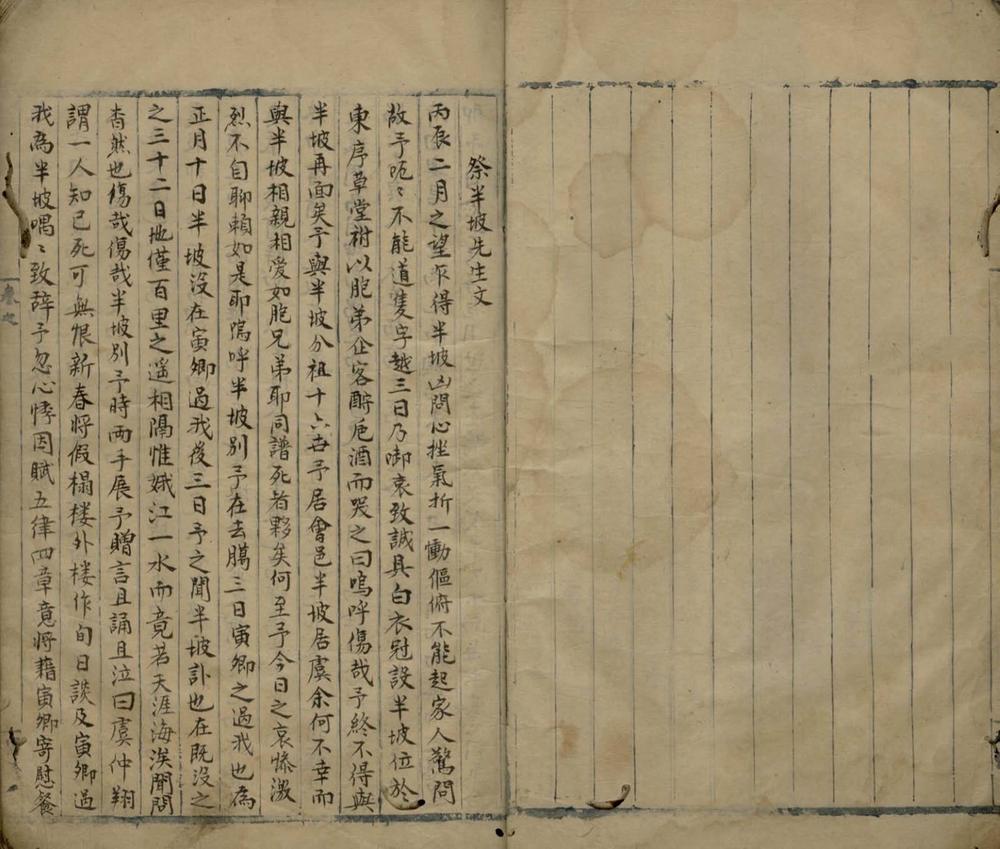 祭半坡先生文
丙辰二月之望乍得半坡凶問心挫氣折一慟傴俯不能起家人驚問
故予呃〻不能道隻字越三日乃啣哀致誠具白衣冠設半坡位於
東序草堂祔以胞弟企客酹卮酒而哭之曰嗚呼傷哉予終不得與
半坡再面矣予與半坡分祖十六世予居會邑半坡居虞余何不幸而
與半坡相親相愛如胞兄弟耶同譜死者夥矣何至予今日之哀慘激
烈不自聊賴如是耶嗚呼半坡別予在去臈三日寅卿之過我也為
正月十日半坡沒在寅卿過我後三日予之聞半坡訃也在既沒之
之三十二日地僅百里之遥相隔惟娥江一水而竟若天涯海涘聞問
杳然也傷哉傷哉半坡別予時兩手展予贈言且誦且泣曰虞仲翔
謂一人知己死可無恨新春將假榻楼外楼作旬日談及寅卿過
我為半坡喁〻致辞予忽心悸因賦五律四章竟將藉寅卿寄慰餐